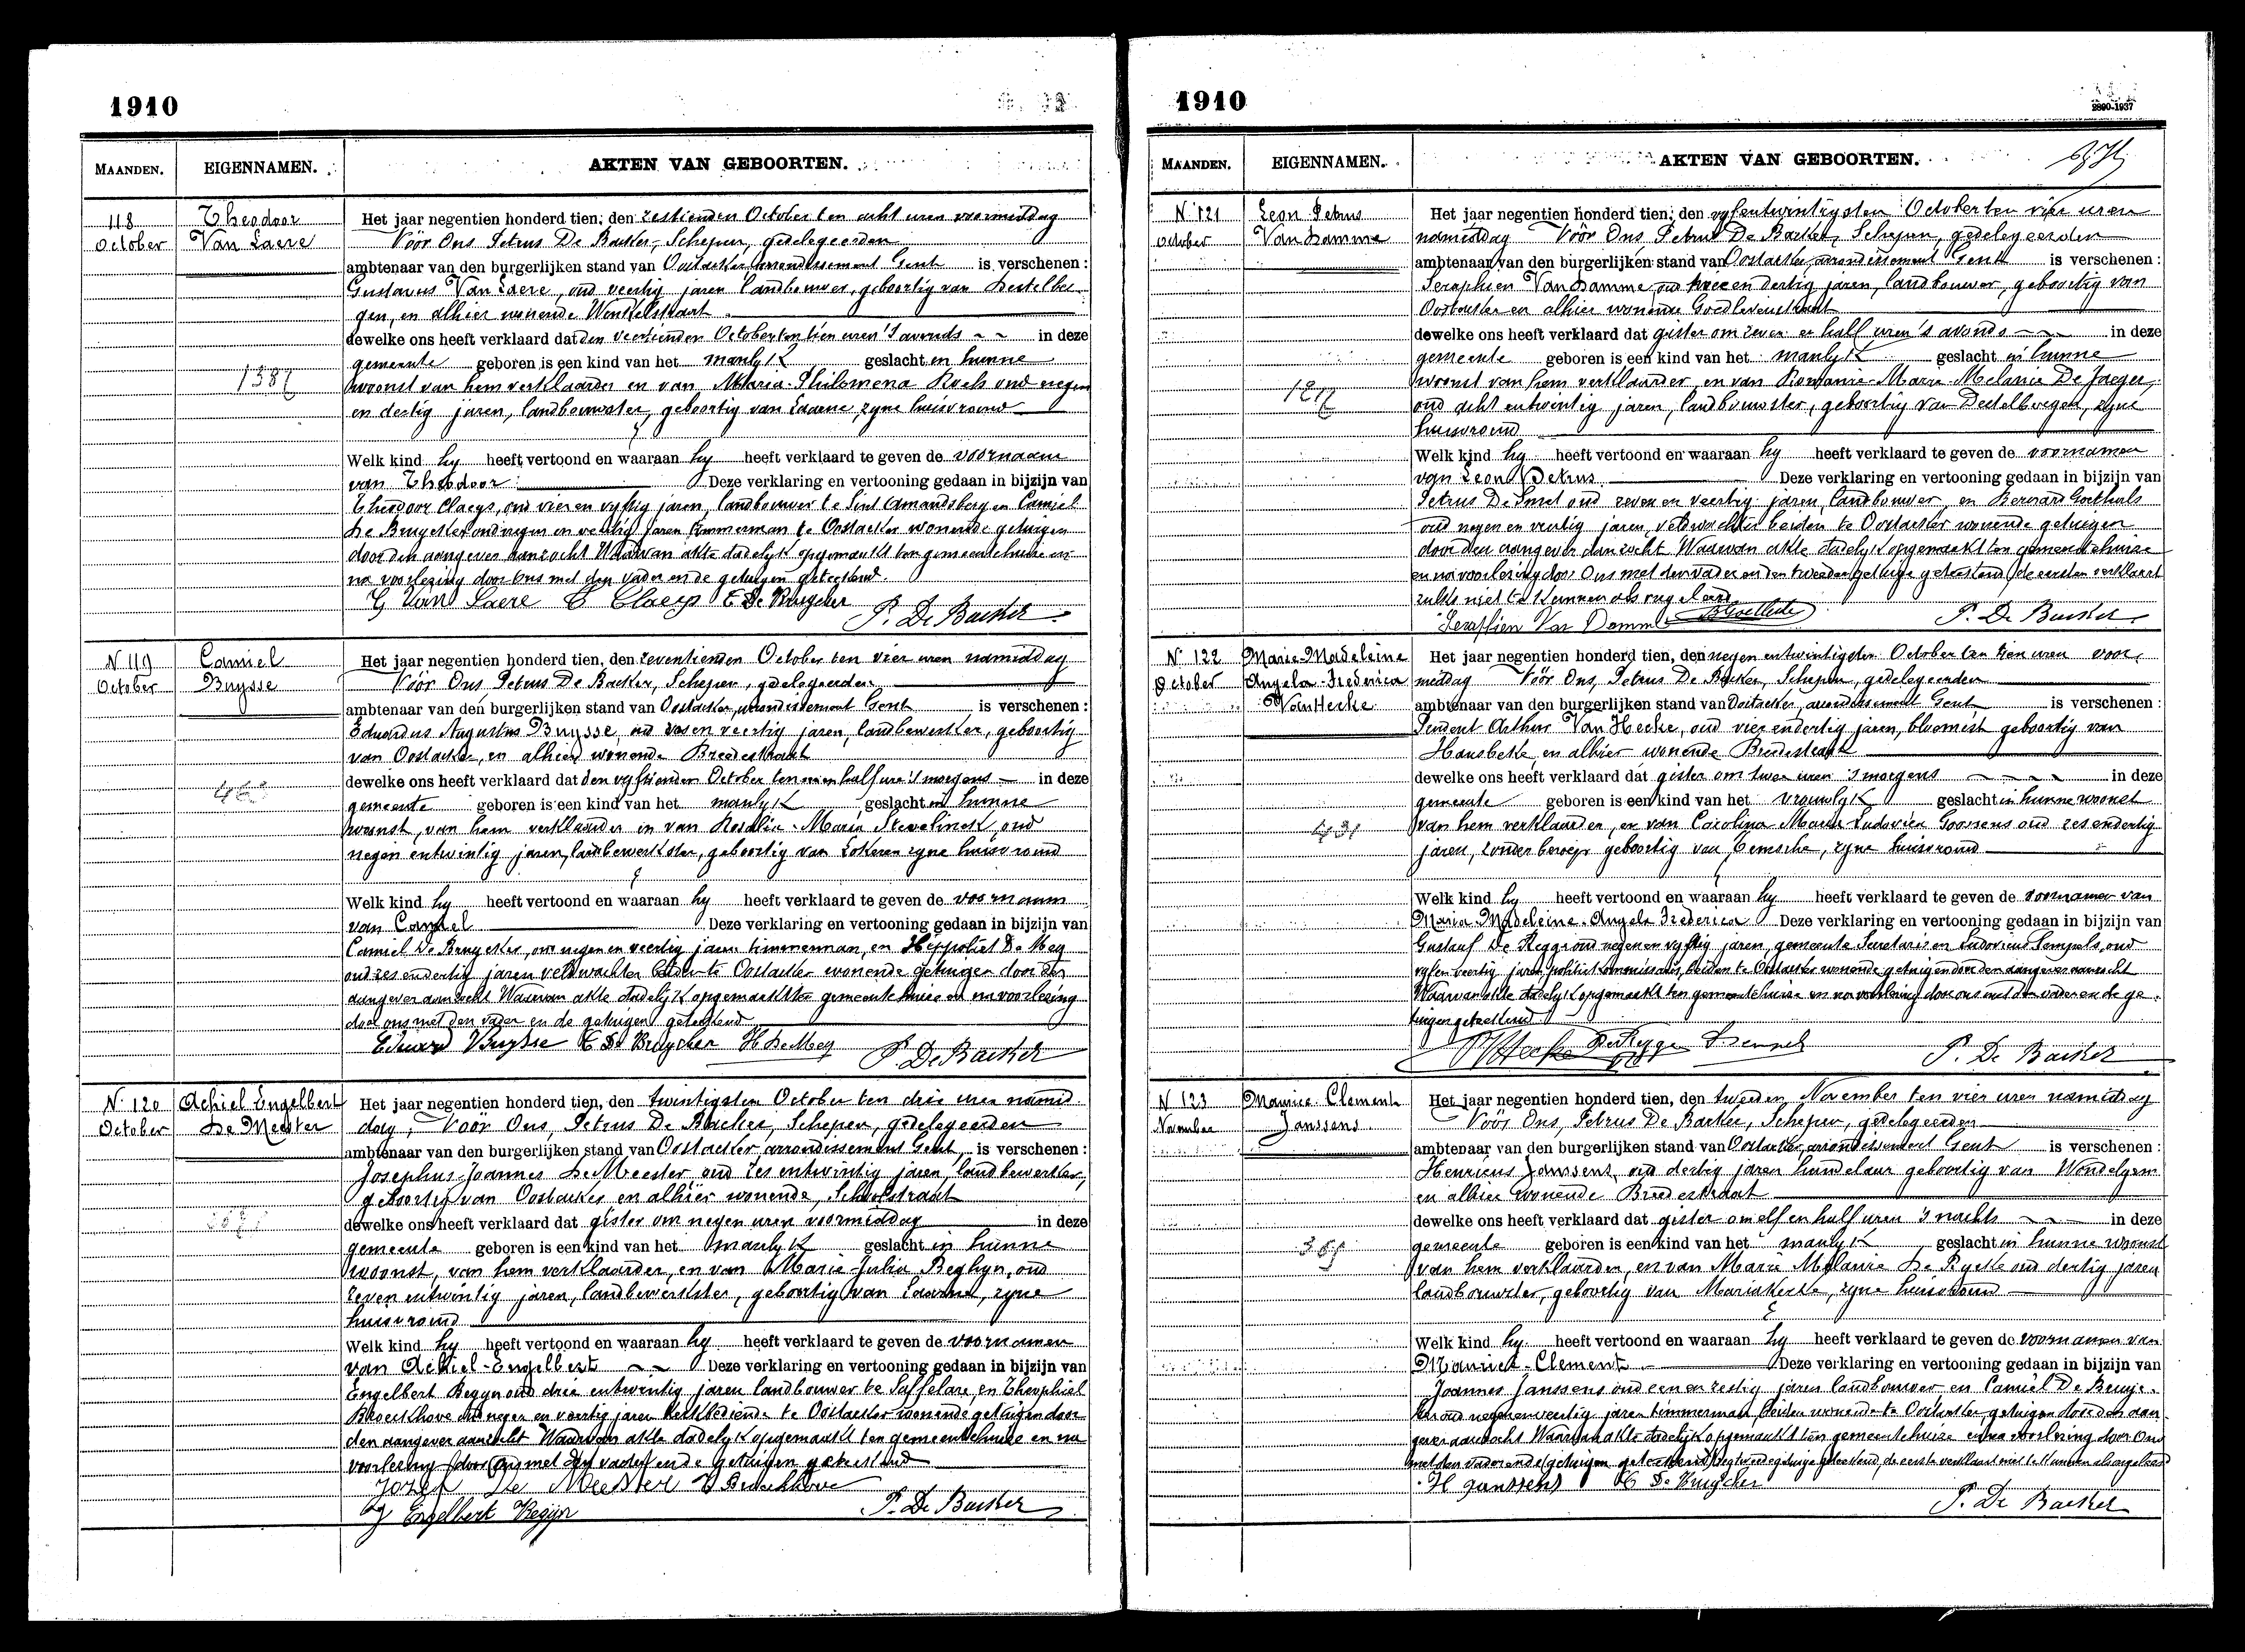 1910
MAANDEN. EIGENNAMEN. AKTEN VAN GEBOORTEN.
118 October
Theodoor Van Laere
Het jaar negentien honderd tien, den zestienden October ten acht uren voormiddag
Vóór Ons Petrus De Backer, Schepen, gedelegeerden
ambtenaar van den burgerlijken stand van Oostacker arrondissement Gent is verschenen:
Gustavus Van Laere, oud veertig jaren landbouwer, geboortig van Destelber-
gen, en alhier wonende Winkelstraat
dewelke ons heeft verklaard dat den veertienden October ten tien uren 's avonds in deze
gemeente geboren is een kind van het manlyk geslacht in hunne
1387
woonst van hem verklaarder en van Maria-Philomena Roels oud negen
en dertig jaren, landbouwster, geboortig van Laarne, zyne huisvrouw
Welk kind hy heeft vertoond en waaraan hy heeft verklaard te geven de voornaam
van Theodoor Deze verklaring en vertooning gedaan in bijzijn van
Theodoor Claeys, oud vier en vyftig jaren, landbouwer te Sint Amandsberg en Camiel
De Bruycker oud negen en veertig jaren timmerman te Oostacker wonende getuigen
door den aangever aanzocht Waarvan akte dadelyk opgemaakt ten gemeentehuize en
na voorlezing door Ons met den vader en de getuigen geteekend.
G Van Laere T Claeys C De Bruycker P. De Backer
N 119 October
Camiel Buysse
Het jaar negentien honderd tien, den zeventienden October ten vier uren namiddag
Vóór Ons, Petrus De Backer, Schepen, gedelegeerden
ambtenaar van den burgerlijken stand van Oostacker, arrondissement Gent is verschenen:
Eduardus Augustus Buysse, oud zes en veertig jaren, landbewerker, geboortig
van Oostacker, en alhier wonende Breedestraat
dewelke ons heeft verklaard dat den vyftienden October ten een half ure 's morgens in deze
gemeente geboren is een kind van het manlyk geslacht in hunne
woonst, van hem verklaarder en van Rosalia-Maria Stevelinck, oud
negen entwintig jaren, landbewerkster, geboortig van Lokeren zyne huisvrouw
Welk kind hy heeft vertoond en waaraan hy heeft verklaard te geven de voornaam
van Camiel Deze verklaring en vertooning gedaan in bijzijn van
Camiel De Bruycker, oud negen en veertig jaren timmerman, en Hippoliet De Mey
oud zes endertig jaren veldwachter beiden te Oostacker wonende getuigen door den
aangever aanzocht Waarvan akte dadelyk opgemaakt ten gemeentehuize en na voorlezing
door ons met den vader en de getuigen geteekend
Eduard Buysse C De Bruycker H De Mey P. De Backer
N. 120 October
Achiel Engelbert De Meester
Het jaar negentien honderd tien, den twintigsten October ten drie uren namid-
dag, Vóór Ons, Petrus De Backer, Schepen, gedelegeerden
ambtenaar van den burgerlijken stand van Oostacker arrondissement Gent is verschenen:
Josephus-Joannes De Meester oud zes entwintig jaren, landbewerker,
geboortig van Oostacker en alhier wonende, Schoolstraat
dewelke ons heeft verklaard dat gister om negen uren voormiddag in deze
gemeente geboren is een kind van het manlyk geslacht in hunne
woonst, van hem verklaarder, en van Maria-Julia Beghyn, oud
zeven entwintig jaren, landbewerkster, geboortig van Laarne, zyne
huisvrouw
Welk kind hy heeft vertoond en waaraan hy heeft verklaard te geven de voornamen
van Achiel-Engelbert Deze verklaring en vertooning gedaan in bijzijn van
Engelbert Begyn oud drie entwintig jaren landbouwer te Saffelare en Theophiel
Broeckhove oud negen en veertig jaren kerkbediende te Oostacker wonende getuigen door
den aangever aanzocht Waarvan akte dadelyk opgemaakt ten gemeentehuize en na
voorlezing door Ons met den vader en de getuigen geteekend
Jozef De Meester T Broeckhove
Engelbert Begijn P. De Backer
1910
2890-1937
MAANDEN. EIGENNAMEN. AKTEN VAN GEBOORTEN.
N. 121 October
Leon Petrus Van Damme
Het jaar negentien honderd tien, den vyfentwintigsten October ten vier uren
namiddag Vóór Ons, Petrus De Backer, Schepen, gedelegeerden
ambtenaar van den burgerlijken stand van Oostacker, arrondissement Gent is verschenen:
Seraphien Van Damme, oud twee en dertig jaren, landbouwer, geboortig van
Oostacker en alhier wonende Goedlevenstraat
dewelke ons heeft verklaard dat gister om zeven en half uren 's avonds in deze
gemeente geboren is een kind van het manlyk geslacht in hunne
woonst van hem verklaarder, en van Romanie-Marie-Melanie De Jaeger,
oud acht entwintig jaren, landbouwster, geboortig van Destelbergen, zyne
huisvrouw
Welk kind hy heeft vertoond en waaraan hy heeft verklaard te geven de voornamen
van Leon Petrus Deze verklaring en vertooning gedaan in bijzijn van
Petrus De Smet oud zeven en veertig jaren, landbouwer, en Bernard Goethals
oud negen en veertig jaren, veldwachter beiden te Oostacker wonende getuigen
door den aangever aanzocht Waarvan akte dadelyk opgemaakt ten gemeentehuize
en na voorlezing door Ons met den vader en den tweeden getuige geteekend, de eersten verklaart
zulks niet te kunnen als ongeleerd
Seraffien Van Damme B Goethals P. De Backer
N. 122 October
Maria-Madeleine Angela-Frederica Van Hecke
Het jaar negentien honderd tien, den negen entwintigsten October ten tien uren voor-
middag Vóór Ons, Petrus De Backer, Schepen, gedelegeerden
ambtenaar van den burgerlijken stand van Oostacker, arrondissement Gent is verschenen:
Arthur Van Hecke, oud vier endertig jaren, bloemist geboortig van
Hansbeke, en alhier wonende Breedestraat
dewelke ons heeft verklaard dat gister om twee uren 's morgens in deze
gemeente geboren is een kind van het vrouwlyk geslacht in hunne woonst
van hem verklaarder, en van Carolina-Maria-Ludovica Goossens oud zes endertig
jaren, zonder beroep geboortig van Temsche, zyne huisvrouw
Welk kind hy heeft vertoond en waaraan hy heeft verklaard te geven de voornamen van
Maria-Madeleine-Angela Frederica Deze verklaring en vertooning gedaan in bijzijn van
Gustaaf De Regge oud negen en vyftig jaren, gemeente Secretaris en Ludovicus Sempels, oud
vyf en veertig jaren politiek commissaris, beiden te Oostacker wonende getuigen door den aangever aanzocht
Waarvan akte dadelyk opgemaakt ten gemeentehuize en na voorlezing door ons met den vader en de ge-
tuigen geteekend
Van Hecke De Regge P. De Backer
N 123 November
Maurice-Clement Janssens
Het jaar negentien honderd tien, den tweeden November ten vier uren namiddag
Vóór Ons, Petrus De Backer, Schepen, gedelegeerden
ambtenaar van den burgerlijken stand van Oostacker, arrondissement Gent is verschenen:
Henricus Janssens, oud dertig jaren handelaar geboortig van Wondelgem
en alhier wonende Breedestraat
dewelke ons heeft verklaard dat gister om elf en half uren 's nachts in deze
gemeente geboren is een kind van het manlyk geslacht in hunne woonst
van hem verklaarder, en van Marie Melanie De Rycke oud dertig jaren
landbouwster, geboortig van Mariakerke, zyne huisvrouw
Welk kind hy heeft vertoond en waaraan hy heeft verklaard te geven de voornamen van
Maurice-Clement Deze verklaring en vertooning gedaan in bijzijn van
Joannes Janssens oud een en zestig jaren landbouwer en Camiel De Bruyc-
ker oud negen en veertig jaren timmerman, beiden wonende te Oostacker, getuigen door den aan-
gever aanzocht Waarvan akte dadelijk opgemaakt ten gemeentehuize en na voorlezing door Ons
met den vader en de tweede getuige geteekend, de eerste verklaart niet te kunnen als ongeleerd
H Janssens C De Bruycker
P. De Backer